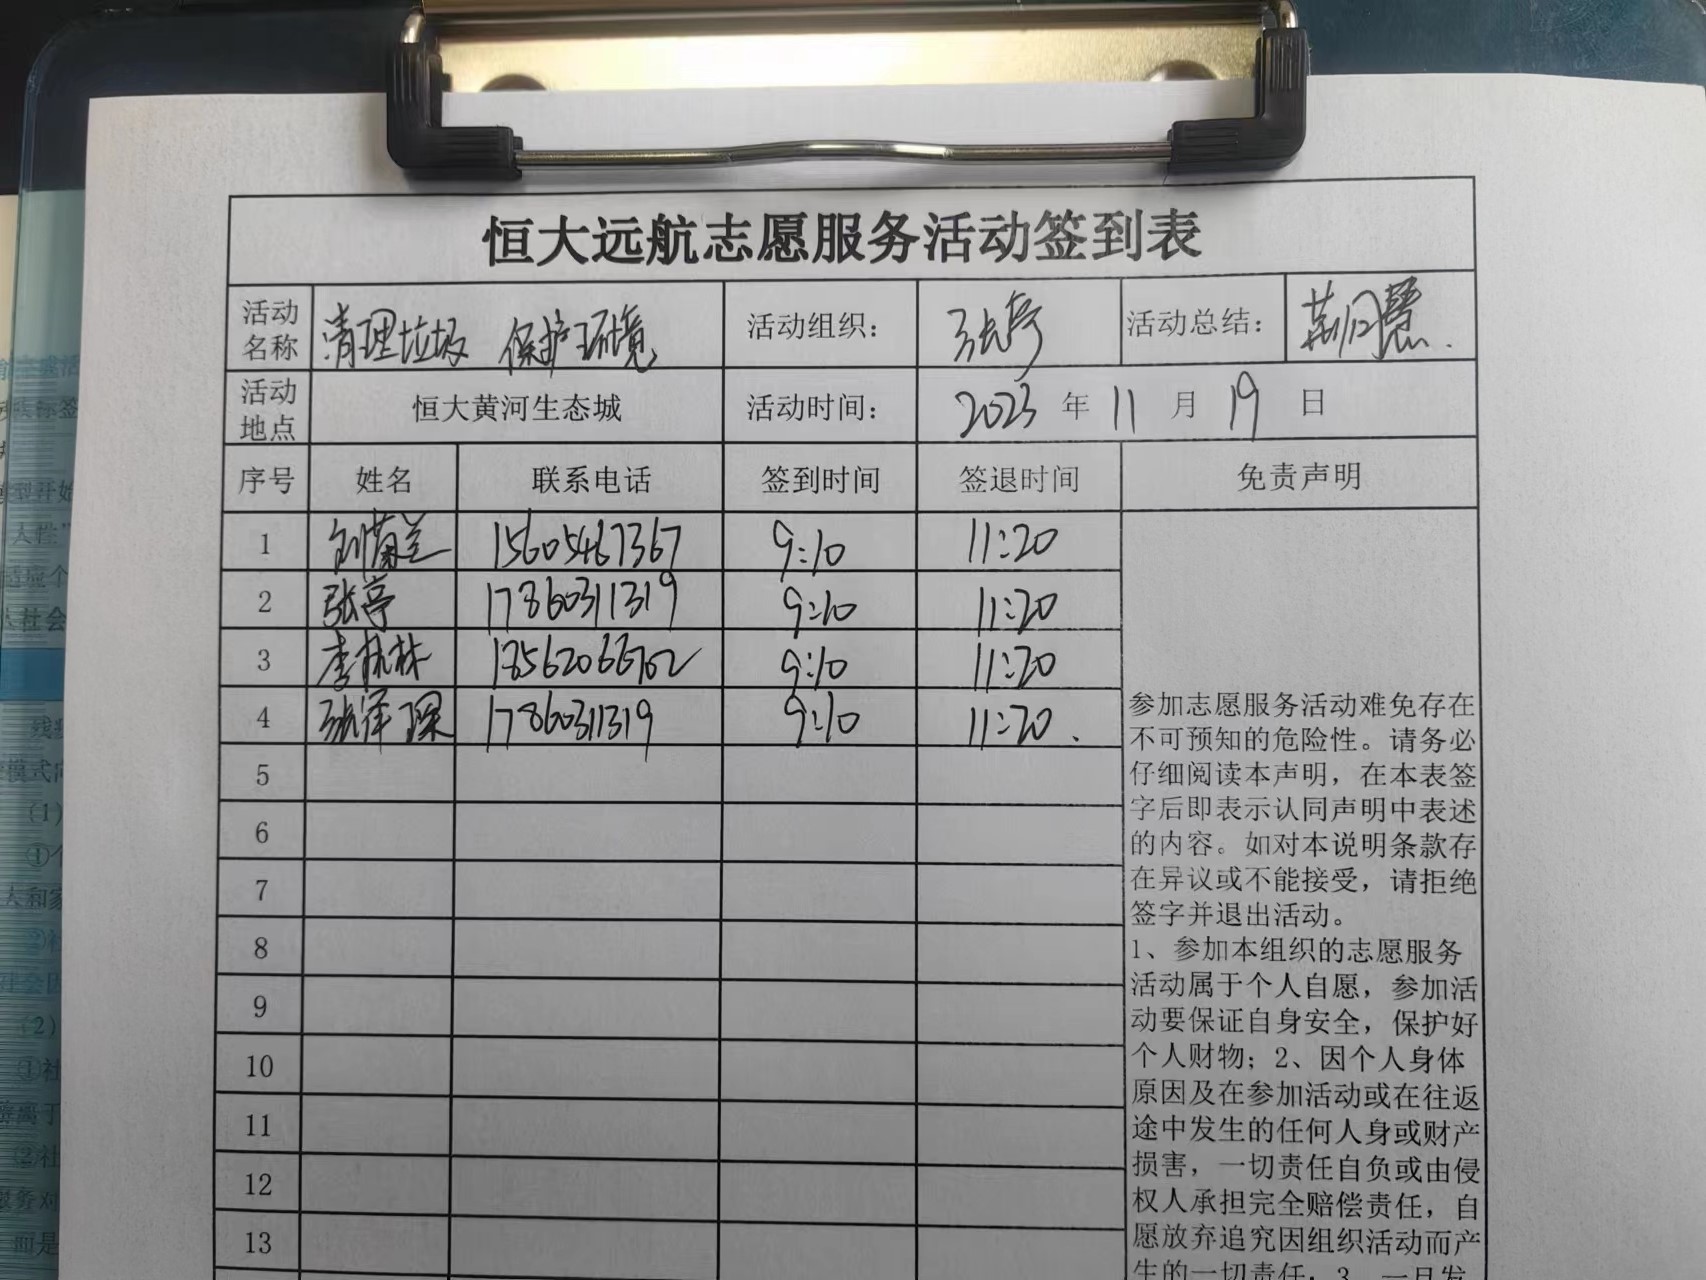 恒大远航志愿服务活动签到表
活动名称 清理垃圾 保护环境 活动组织： 张亭 活动总结：
活动地点 恒大黄河生态城 活动时间： 2023 年 11 月 19 日
序号 姓名 联系电话 签到时间 签退时间 免责声明
1 刘菊兰 15605467367 9:10 11:20
2 张亭 17860311319 9:10 11:20
3 李林林 18562066702 9:10 11:20
4 张泽琛 17860311319 9:10 11:20.
5
6
7
8
9
10
11
12
13
参加志愿服务活动难免存在
不可预知的危险性。请务必
仔细阅读本声明，在本表签
字后即表示认同声明中表述
的内容。如对本说明条款存
在异议或不能接受，请拒绝
签字并退出活动。
1、参加本组织的志愿服务
活动属于个人自愿，参加活
动要保证自身安全，保护好
个人财物；2、因个人身体
原因及在参加活动或在往返
途中发生的任何人身或财产
损害，一切责任自负或由侵
权人承担完全赔偿责任，自
愿放弃追究因组织活动而产
生的一切责任；3、一旦发